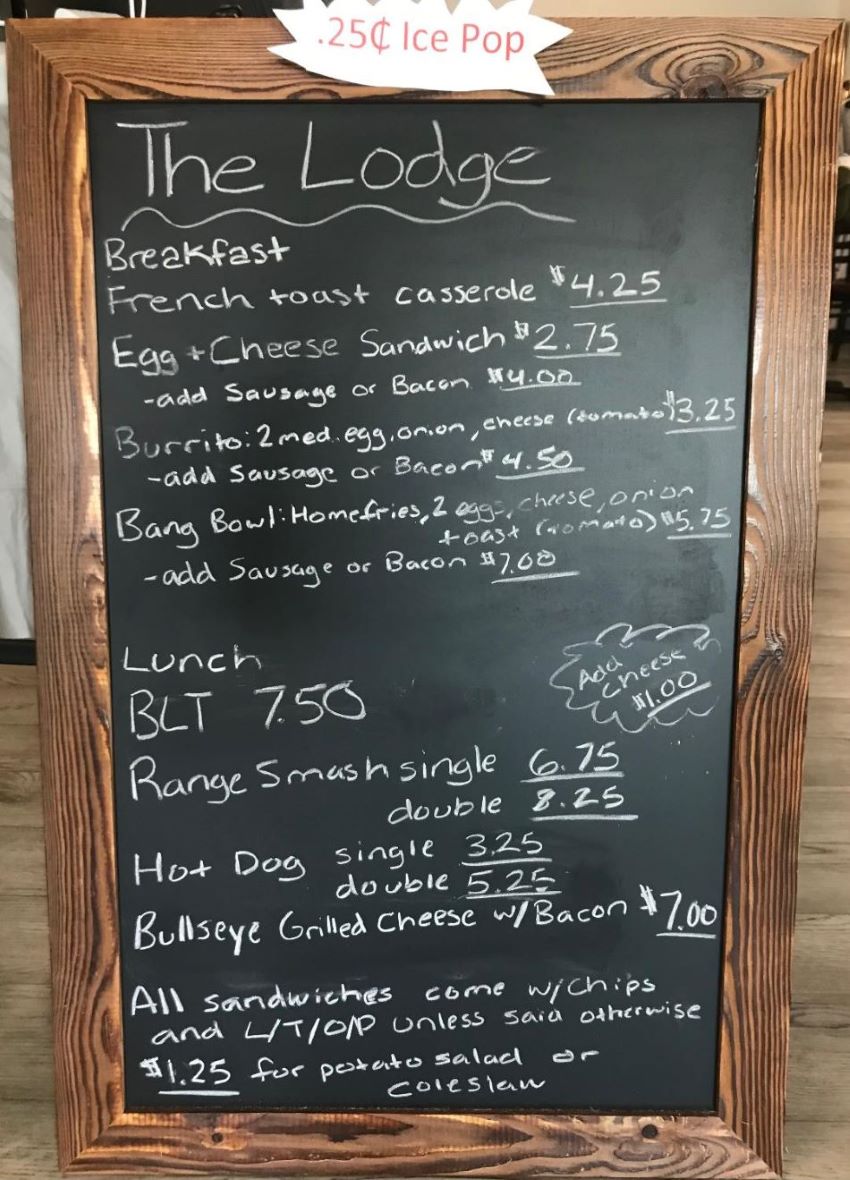 .25¢ Ice Pop
The Lodge
Breakfast
French toast casserole $4.25
Egg + Cheese Sandwich $2.75
-add Sausage or Bacon $4.00
Burrito: 2 med. egg, onion, cheese (tomato) $3.25
-add Sausage or Bacon $4.50
Bang Bowl: Homefries, 2 eggs, cheese, onion
toast (tomato) $5.75
-add Sausage or Bacon $7.00
Lunch
Add
Cheese
$1.00
BLT 7.50
Range Smash single 6.75
double 8.25
Hot Dog single 3.25
double 5.25
Bullseye Grilled Cheese w/Bacon $7.00
All sandwiches come w/chips
and L/T/O/P unless said otherwise
$1.25 for potato salad or
coleslaw